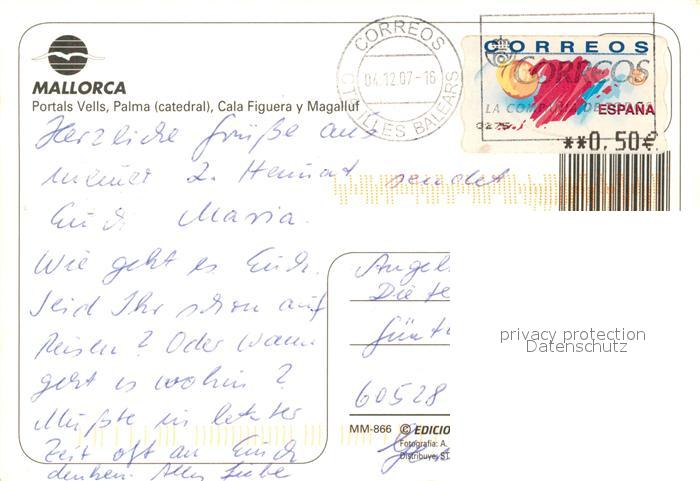 MALLORCA
Portals Vells, Palma (catedral), Cala Figuera y Magalluf
CORREOS
04.12.07-16
ILLES BALEARS
CORREOS
CORREOS
LA COMPAÑIA DE
ESPAÑA
**0,50€
Herzliche Grüße aus
meiner 2. Heimat sendet
Euch Maria.
Wie geht es Euch.
Seid Ihr schon auf
Reisen? Oder wann
geht es wohin?
Mußte in letzter
Zeit oft an Euch
denken. Alles Liebe
Angel
Die
Günt
60528
MM-866 © EDICIO
Fotografia: A.
Distribuye, ST
privacy protection
Datenschutz